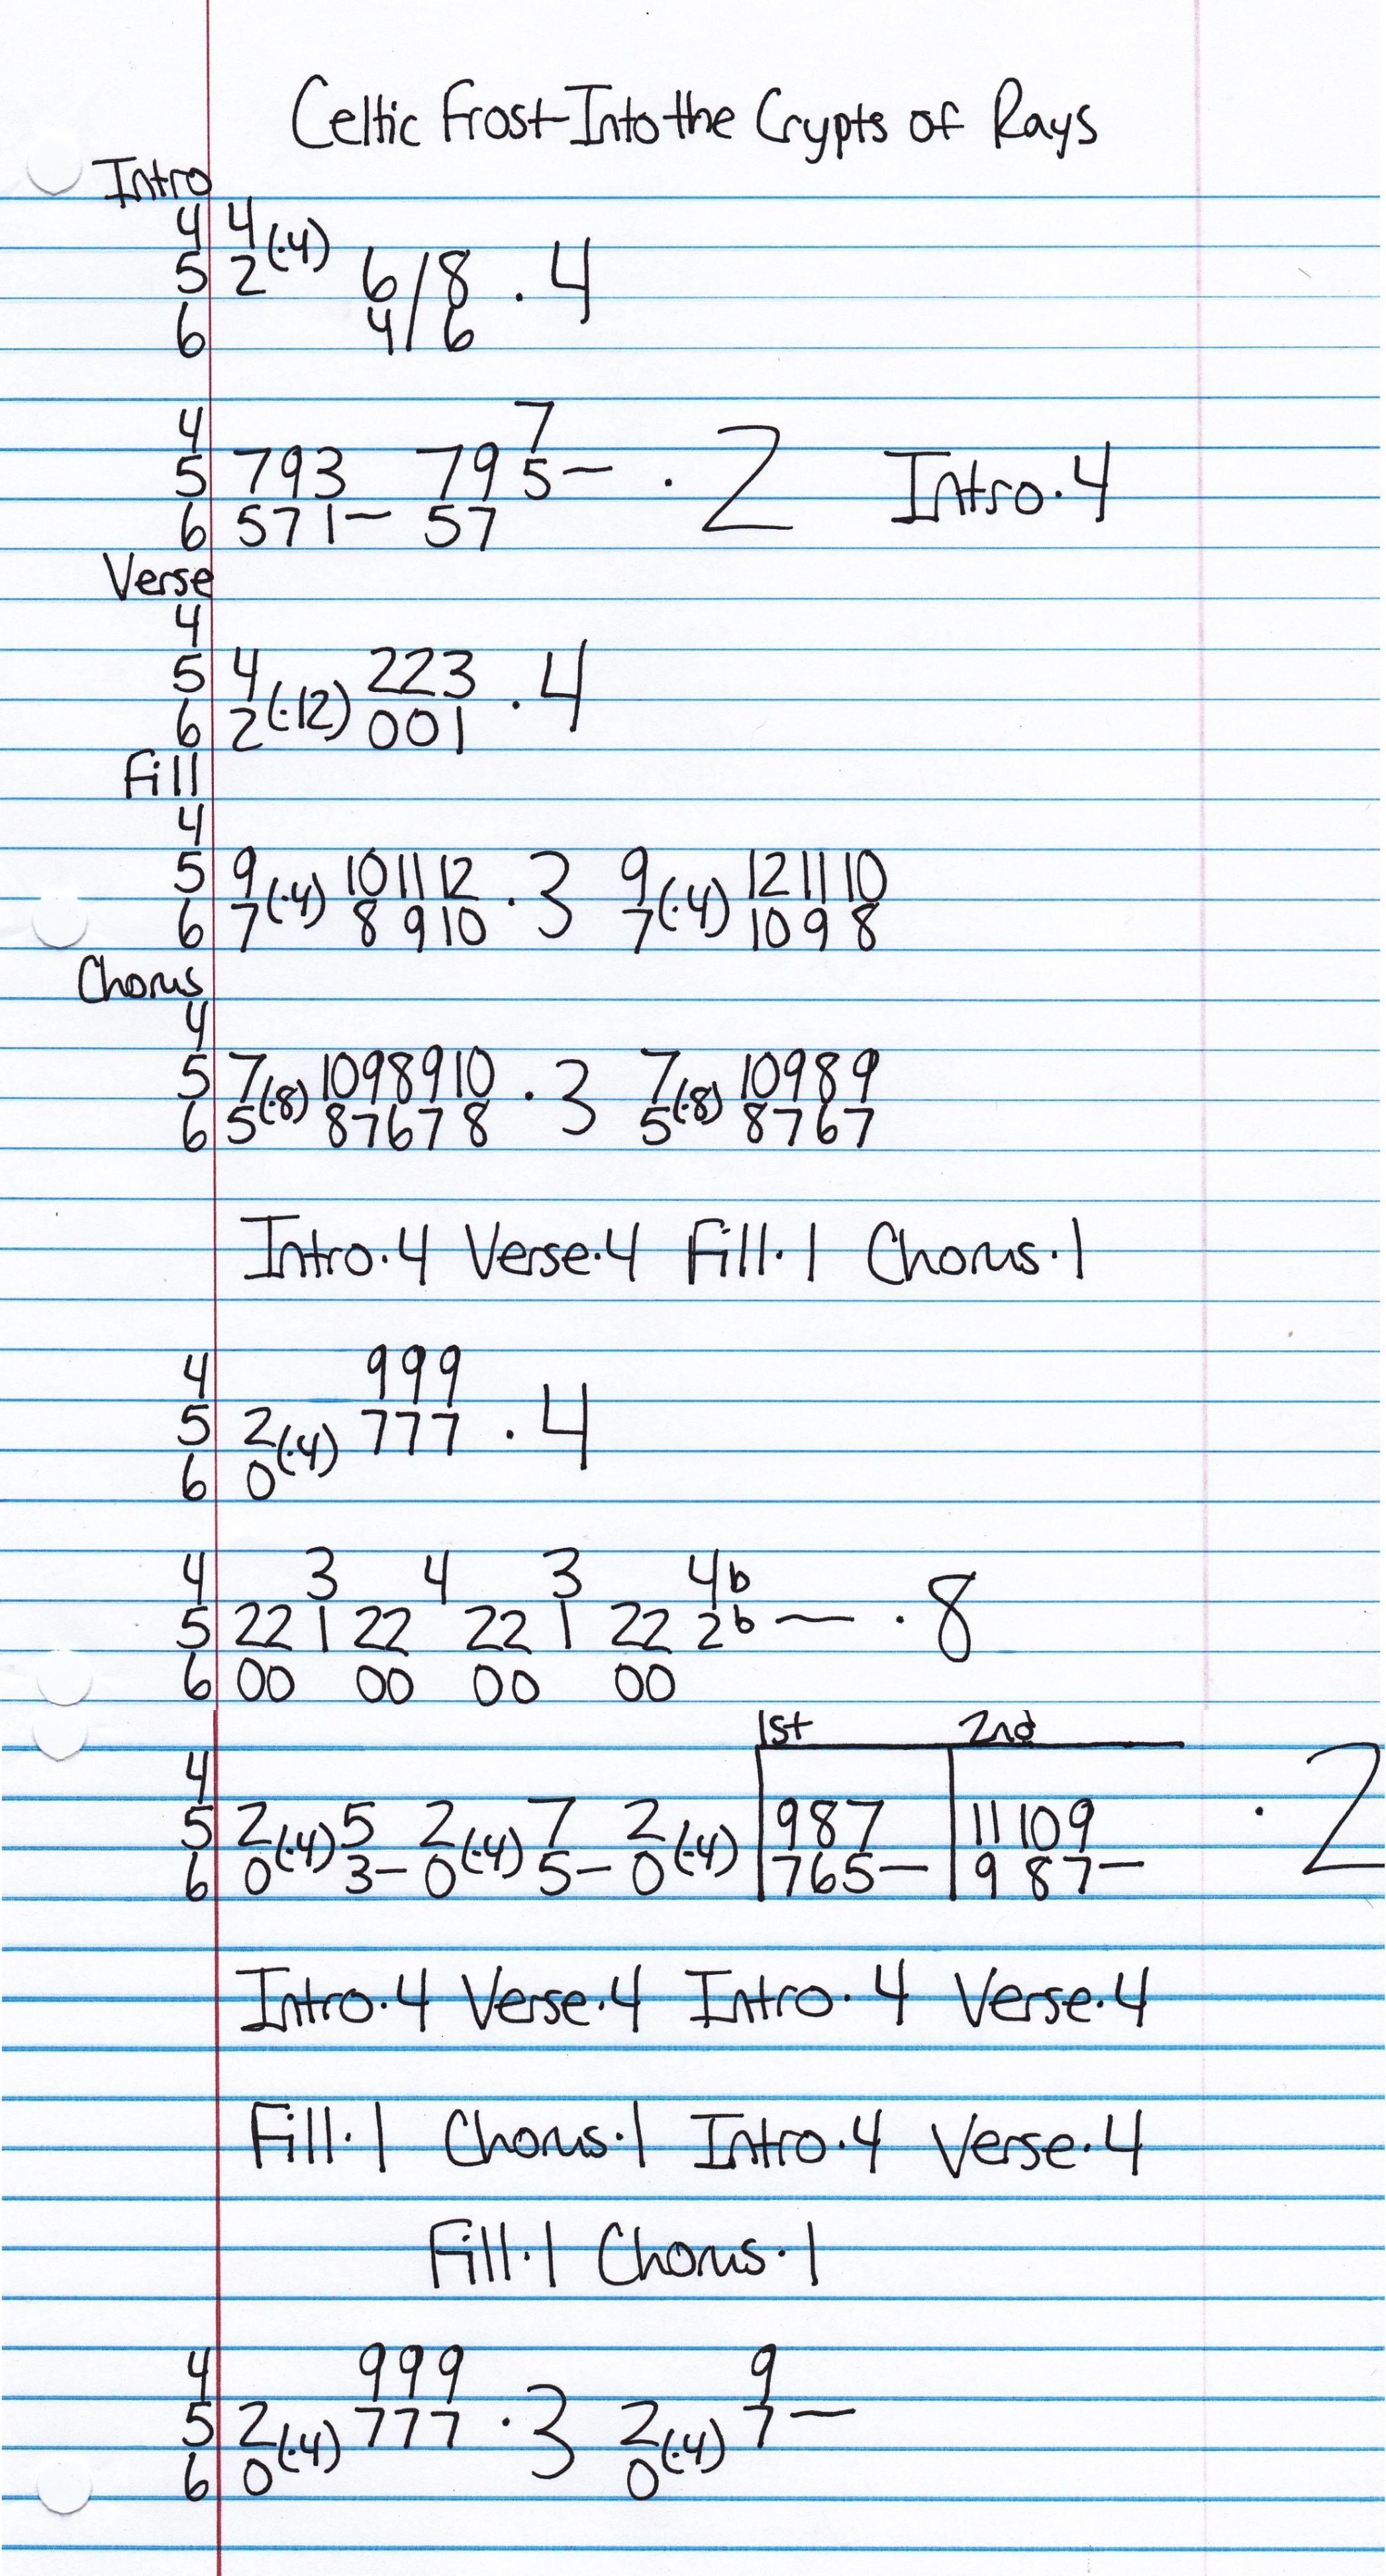 Celtic Frost-Into the Crypts of Rays
Intro
4 4
5 2 (·4) 6/8 · 4
6 4/6
4 7
5 793 79 5— · 2 Intro·4
6 571— 57
Verse
4
5 4 223 · 4
6 2 (·12) 001
Fill
4
5 9 (·4) 10 11 12 · 3 9 (·4) 12 11 10
6 7 8 9 10 7 10 9 8
Chorus
4
5 7 (·8) 10 9 8 9 10 · 3 7 (·8) 10 9 8 9
6 5 8 7 6 7 8 5 8 7 6 7
Intro·4 Verse·4 Fill·1 Chorus·1
4 999
5 2 (·4) 777 · 4
6 0
4 3 4 3 4b
5 22 1 22 22 1 22 2b — · 8
6 00 00 00 00
1st 2nd
4
5 2 (·4) 5 2 (·4) 7 2 (·4) 987 11 10 9 · 2
6 0 3— 0 5— 0 765— 9 8 7—
Intro·4 Verse·4 Intro·4 Verse·4
Fill·1 Chorus·1 Intro·4 Verse·4
Fill·1 Chorus·1
4 999 9
5 2 (·4) 777 · 3 2 (·4) 7—
6 0 0